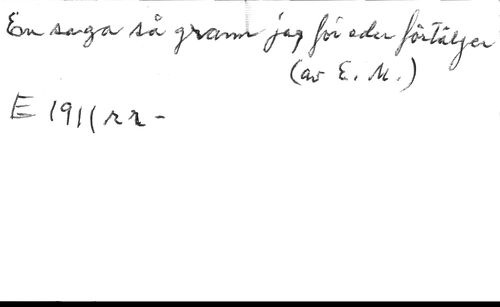 En saga så grann jag för eder förtäljer
(av E. M.)
E 1911